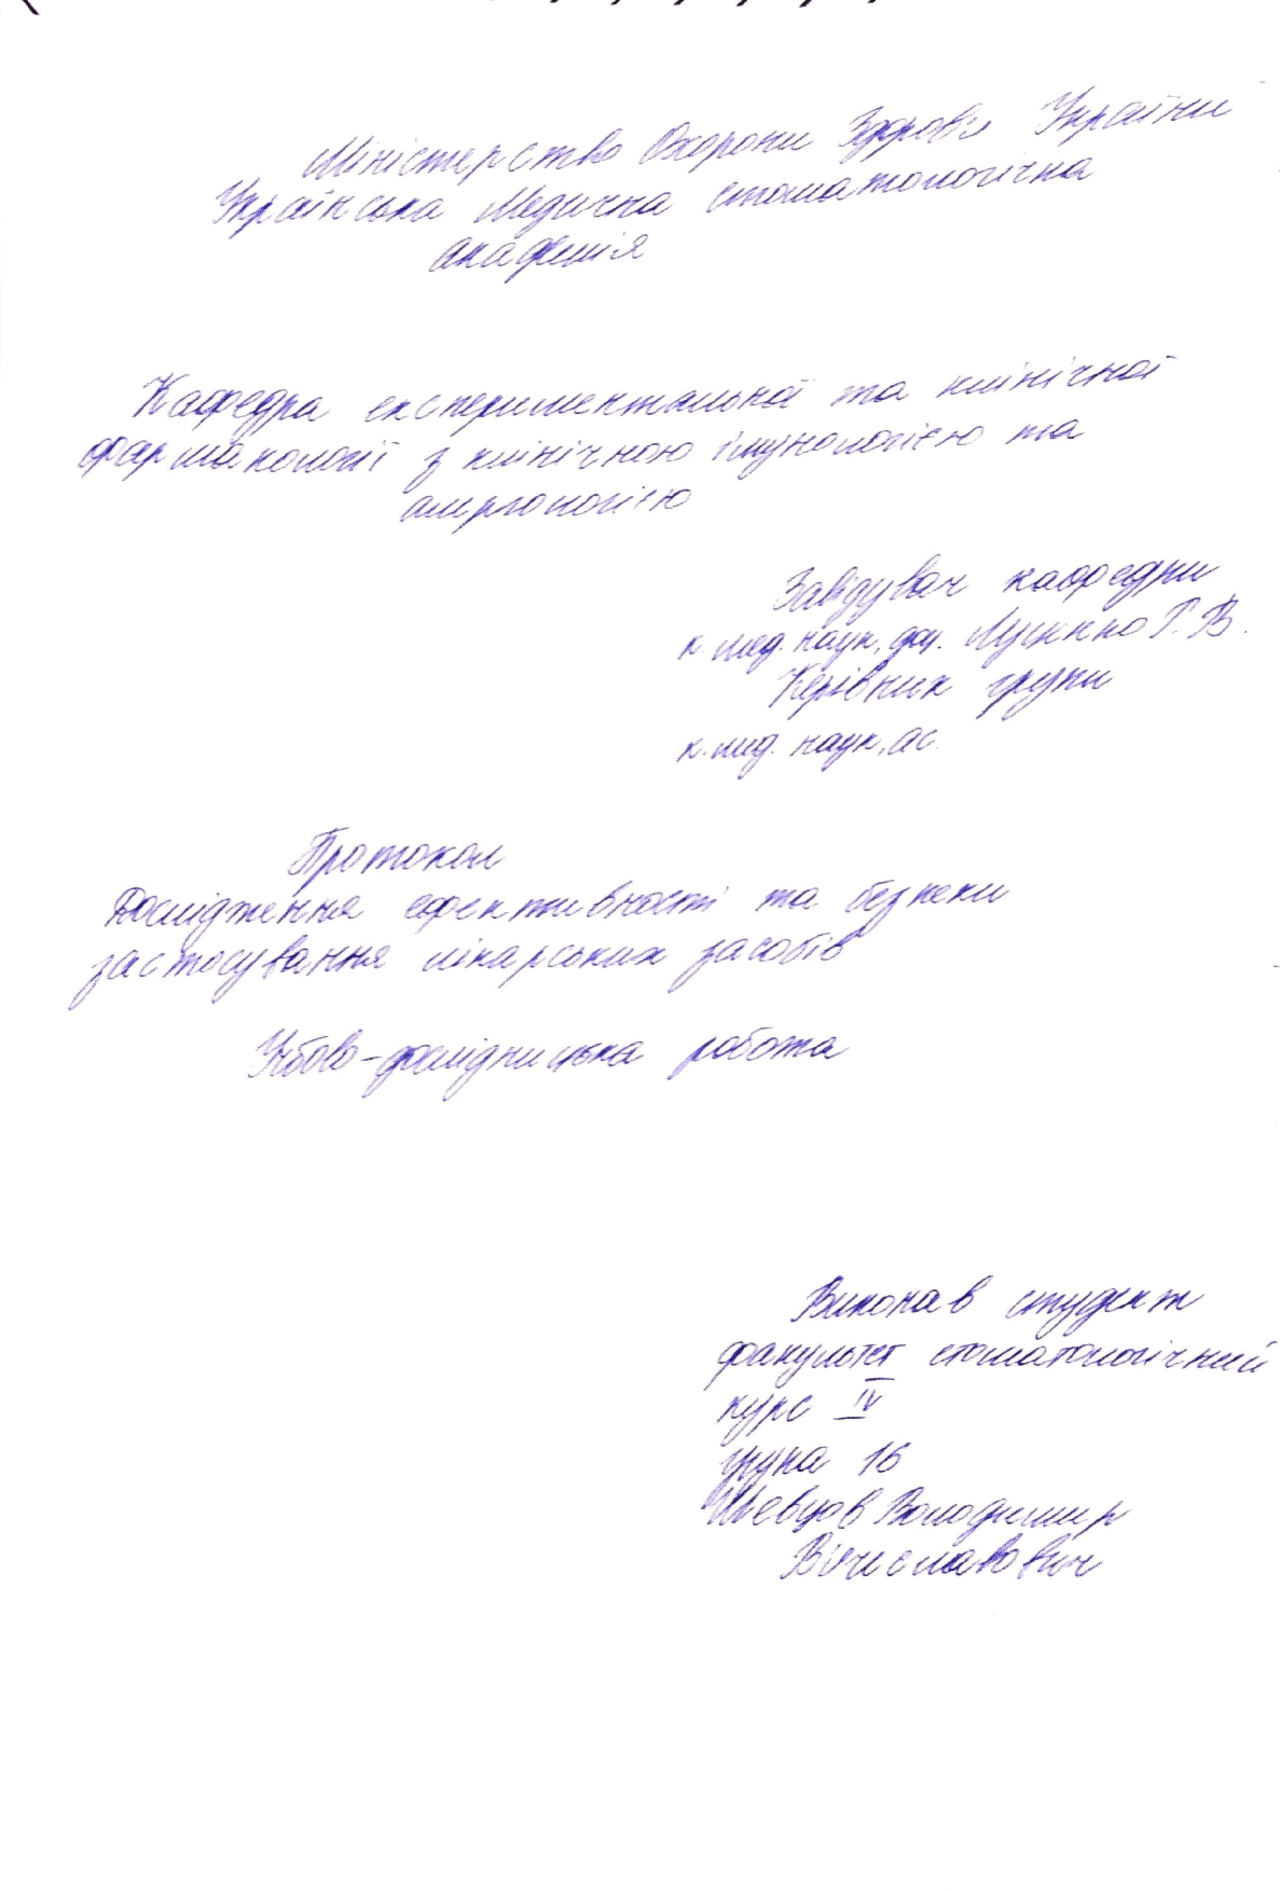 Міністерство Охорони Здоров'я України
Українська Медична стоматологічна
академія
Кафедра експериментальної та клінічної
фармакології з клінічною імунологією та
алергологією
Завідувач кафедри
к. мед. наук, доц. Луценко Р. В.
Керівник групи
к. мед. наук, ас.
Протокол
Дослідження ефективності та безпеки
застосування лікарських засобів
Учбово-дослідницька робота
Виконав студент
факультет стоматологічний
курс IV
група 16
Шевцов Володимир
Вячеславович